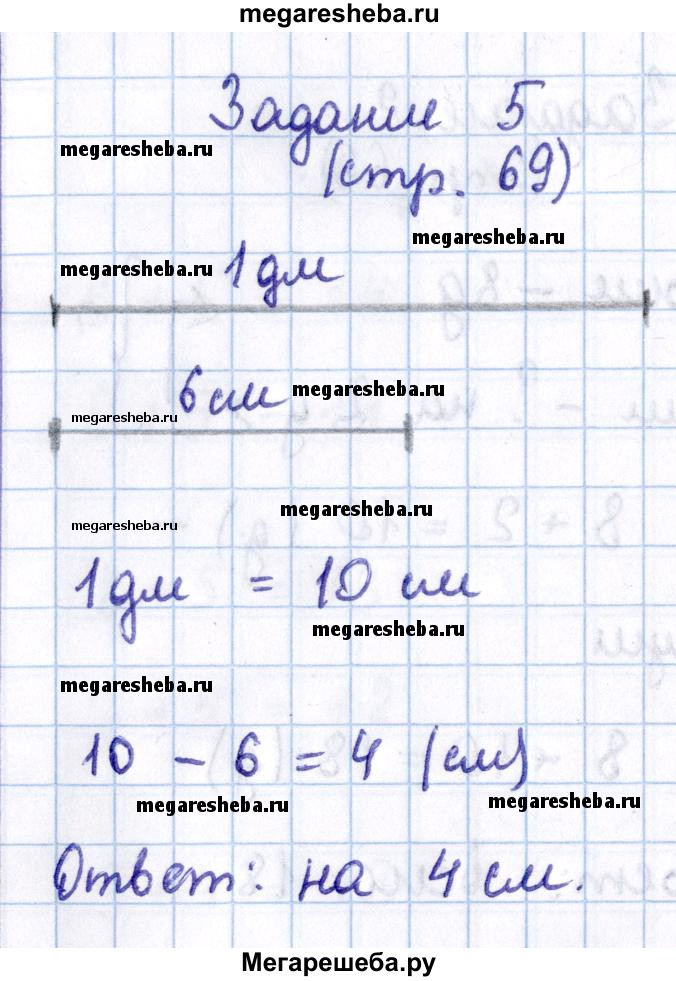 megaresheba.ru
Задание 5
megaresheba.ru
(стр. 69)
megaresheba.ru
megaresheba.ru
1 дм
6 см
megaresheba.ru
megaresheba.ru
megaresheba.ru
megaresheba.ru
1 дм = 10 см
megaresheba.ru
megaresheba.ru
10 - 6 = 4 (см)
megaresheba.ru
megaresheba.ru
Ответ: на 4 см.
Мегарешеба.ру